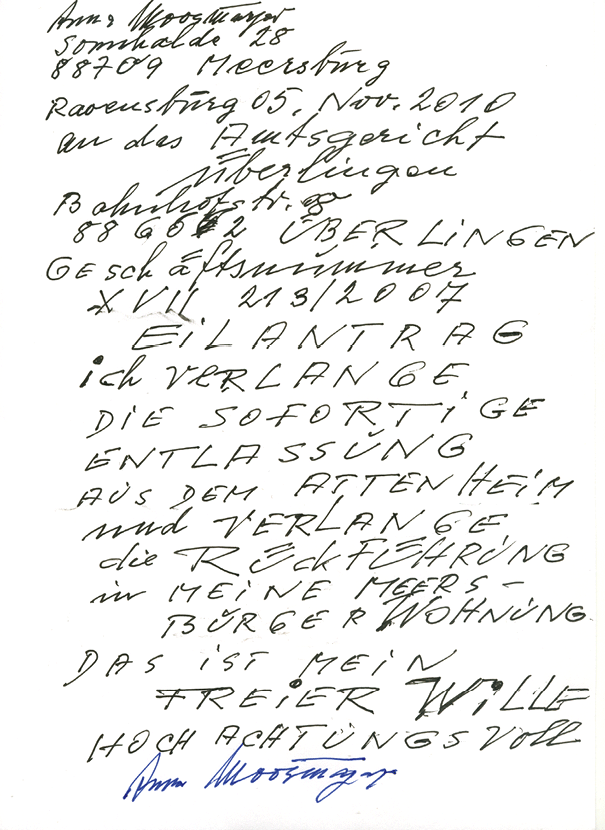 Anna Moosmayer
Sonnhalde 28
88709 Meersburg
Ravensburg 05. Nov. 2010
an das Amtsgericht
Überlingen
Bahnhofstr. 8
88662 ÜBERLiNGEN
GEschäftsnummer
XVII 213/2007
EiLANTRAG
ich VERLANGE
DIE SOFORTiGE
ENTLASSUNG
AUS DEM ATTENHEiM
und VERLANGE
die RÜckFÜHRUNG
in MEiNE MEERS-
BURGER WOHNUNG.
DAS iST MEiN
FREiER WiLLE
HOCHACHTUNGSVoll
Anna Moosmayer